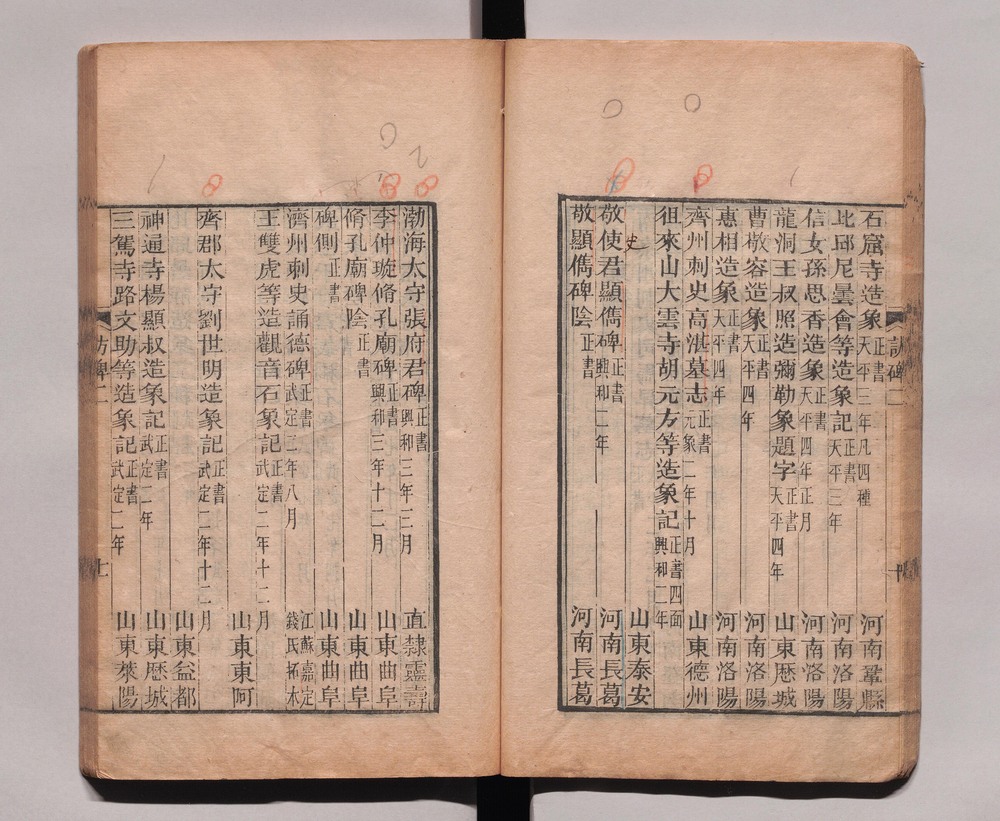 石窟寺造象 正書 天平三年凡四種 河南鞏縣
比邱尼曇會等造象記 正書 天平三年 河南洛陽
信女孫思香造象 正書 天平四年正月 河南洛陽
龍洞王叔照造彌勒象題字 正書 天平四年 山東歷城
曹敬容造象 正書 天平四年 河南洛陽
惠相造象 正書 天平四年 河南洛陽
齊州刺史高湛墓志 正書 元象二年十月 山東德州
徂來山大雲寺胡元方等造象記 正書四面 興和二年
山東泰安
敬使君顯儁碑 正書 興和二年 河南長葛
史
敬顯儁碑陰 正書 河南長葛
訪碑二
十
渤海太守張府君碑 正書 興和三年三月 直隸靈壽
李仲璇脩孔廟碑 正書 興和三年十二月 山東曲阜
脩孔廟碑陰 正書 山東曲阜
碑側 正書 山東曲阜
濟州刺史誦德碑 武定二年八月 江蘇嘉定 錢氏拓本
王雙虎等造觀音石象記 正書 武定二年十二月
山東東阿
齊郡太守劉世明造象記 正書 武定二年十二月
山東益都
神通寺楊顯叔造象記 正書 武定二年 山東歷城
三駕寺路文助等造象記 正書 武定二年 山東萊陽
訪碑二
十一